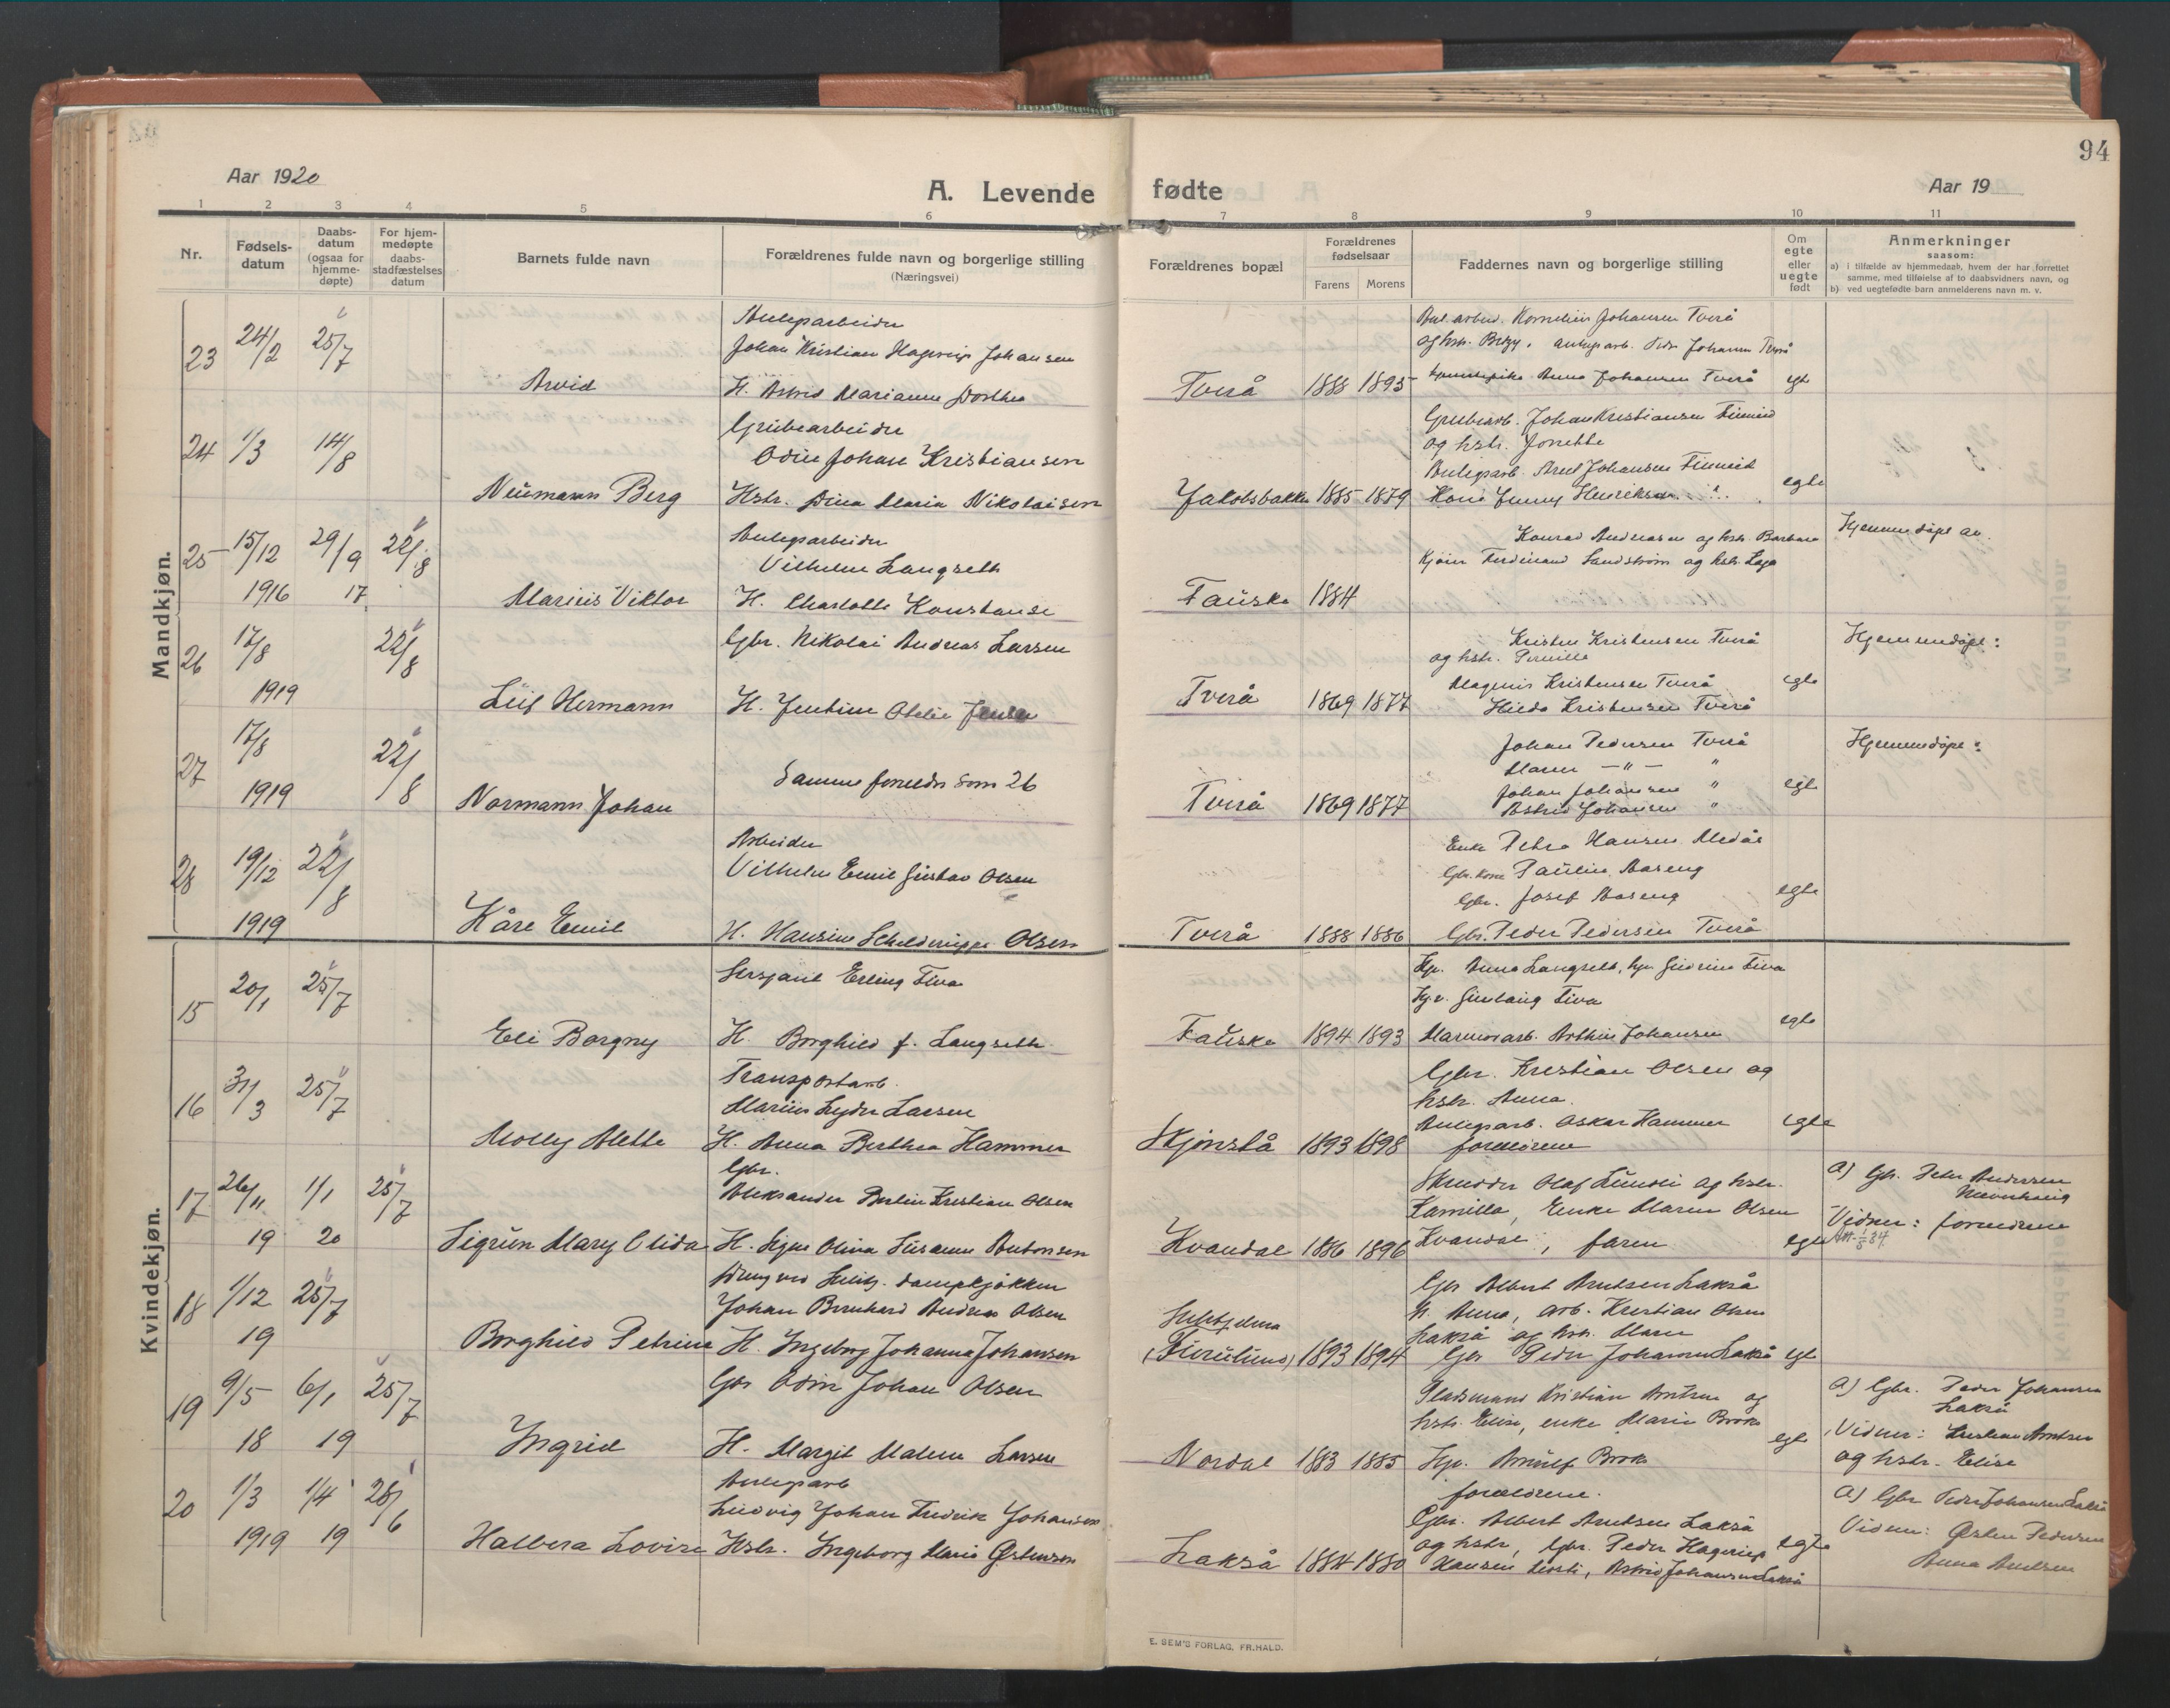 94
Aar 1920
A. Levende fødte
Aar 19
1 2 3 4 5 6 7 8 9 10 11
Nr.
Fødsels-
datum
Daabs-
datum
(ogsaa for
hjemme-
døpte)
For hjem-
medøpte
daabs-
stadfæstelses
datum
Barnets fulde navn
Forældrenes fulde navn og borgerlige stilling
(Næringsvei)
Forældrenes bopæl
Forældrenes
fødselsaar
Farens Morens
Faddernes navn og borgerlige stilling
Om
egte
eller
uegte
født
Anmerkninger
saasom:
a) i tilfælde av hjemmedaab, hvem der har forrettet
samme, med tilføielse af to daabsvidners navn, og
b) ved uegtefødte barn anmelderens navn m. v.
Mandkjøn.
23 24/2 25/7
Arvid
Johan Kristian Hagerup Johansen
H. Astrid Marianne Dorthea
Tverå 1888 1895
Kornelius Johansen Tverå
Anna Johansen Tverå
egte
24 1/3 14/8
Neumann Berg
Grubearbeider
Odin Johan Kristiansen
Hstr. Dina Maria Nikolaisen
Jakobsbakken 1885 1879
Grubearb. Johan Kristiansen
og hstr. Jonette
Kone Jenny Henriksen
egte
25 15/12 1916 29/9 17 22/8
Marius Viktor
Anlegsarbeider
Vilhelm Langseth
H. Charlotte Konstanse
Fauske 1884
Konrad Andreasen og hstr. Barbara
Ferdinand Sandstrøm og hstr.
Hjemmedøpt av
26 17/8 1919 22/8
Leif Hermann
Gbr. Nikolai Andreas Larsen
H. Jentine Otelie Jensen
Tverå 1869 1877
Kristen Kristensen Tverå
og hstr. Pernille
Magnus Kristensen Tverå
Hilda Kristensen Tverå
egte
Hjemmedøpt:
27 17/8 1919 22/8
Normann Johan
Samme foreldre som 26
Tverå 1869 1877
Johan Pedersen Tverå
Maren —"— "
Johan Johansen "
Astrid Johansen "
egte
Hjemmedøpt:
28 19/12 1919 22/8
Kåre Emil
Arbeider
Vilhelm Emil Gustav Olsen
H. Hansine Schelderuppe Olsen
Tverå 1888 1886
Enke Petra Hansen Medås
Gbr. kone Pauline Aaseng
Gbr. Josef Aaseng
Gbr. Peder Pedersen Tverå
egte
Kvindekjøn.
15 20/1 25/7
Eli Borgny
Sersjant Erling Five
H. Borghild f. Langseth
Fauske 1894 1893
Anna Langseth,
Marmorarb. Arthur Johansen
egte
16 31/3 25/7
Molly Alette
Transportarb.
Marius Lyder Larsen
H. Anna Berthea Hammer
Skjønstå 1893 1898
Gbr. Kristian Olsen og
hstr. Anna.
Anlegsarb. Oskar Hammer
foreldrene
egte
17 26/11 19 1/1 20 25/7
Sigrun Mary Olida
Gbr.
Aleksander Berlin Kristian Olsen
H. Signe Olina Susanne Antonsen
Kvandal 1886 1896
Skredder Olaf Lund og hstr.
Kamilla, Enke Maren Olsen
Kvandal, faren
egte
a) Gbr. Peder Andersen
Vidner: foreldrene
18 1/12 19 25/7
Borghild Petrine
Johan Bernhard Andreas Olsen
H. Ingeborg Johanna Johansen
Sulitjelma
(Furulund) 1893 1894
Gbr Albert Arntsen Lakså
H. Anna, arb. Kristian Olsen
Lakså og hstr. Maren
Gbr Peder Johansen Lakså
egte
19 9/5 18 6/1 19 25/7
Ingrid
Gbr Odin Johan Olsen
H. Margit Malene Larsen
Nordal 1883 1885
Pladsmand Kristian Arntsen og
hstr. Elise, enke Maria Brok
Arnulf Brok
foreldrene.
egte
a) Gbr. Peder Johansen
Lakså
Vidner: Kristian Arntsen
og hstr. Elise
20 1/3 1919 1/4 19 26/6
Halbera Lovise
Anlegsarb
Ludvig Johan Fredrik Johansen
Hstr. Ingeborg Maria Østensen
Lakså 1884 1880
Gbr. Albert Arntsen Lakså
og hstr, Gbr. Peder Hagerup
Hansen, Astrid Johansen Lakså
egte
a) Gbr Peder Johansen Lakså
Vidner: Østen Pedersen
Anna Arntsen
E. SEM'S FORLAG, FR.HALD.